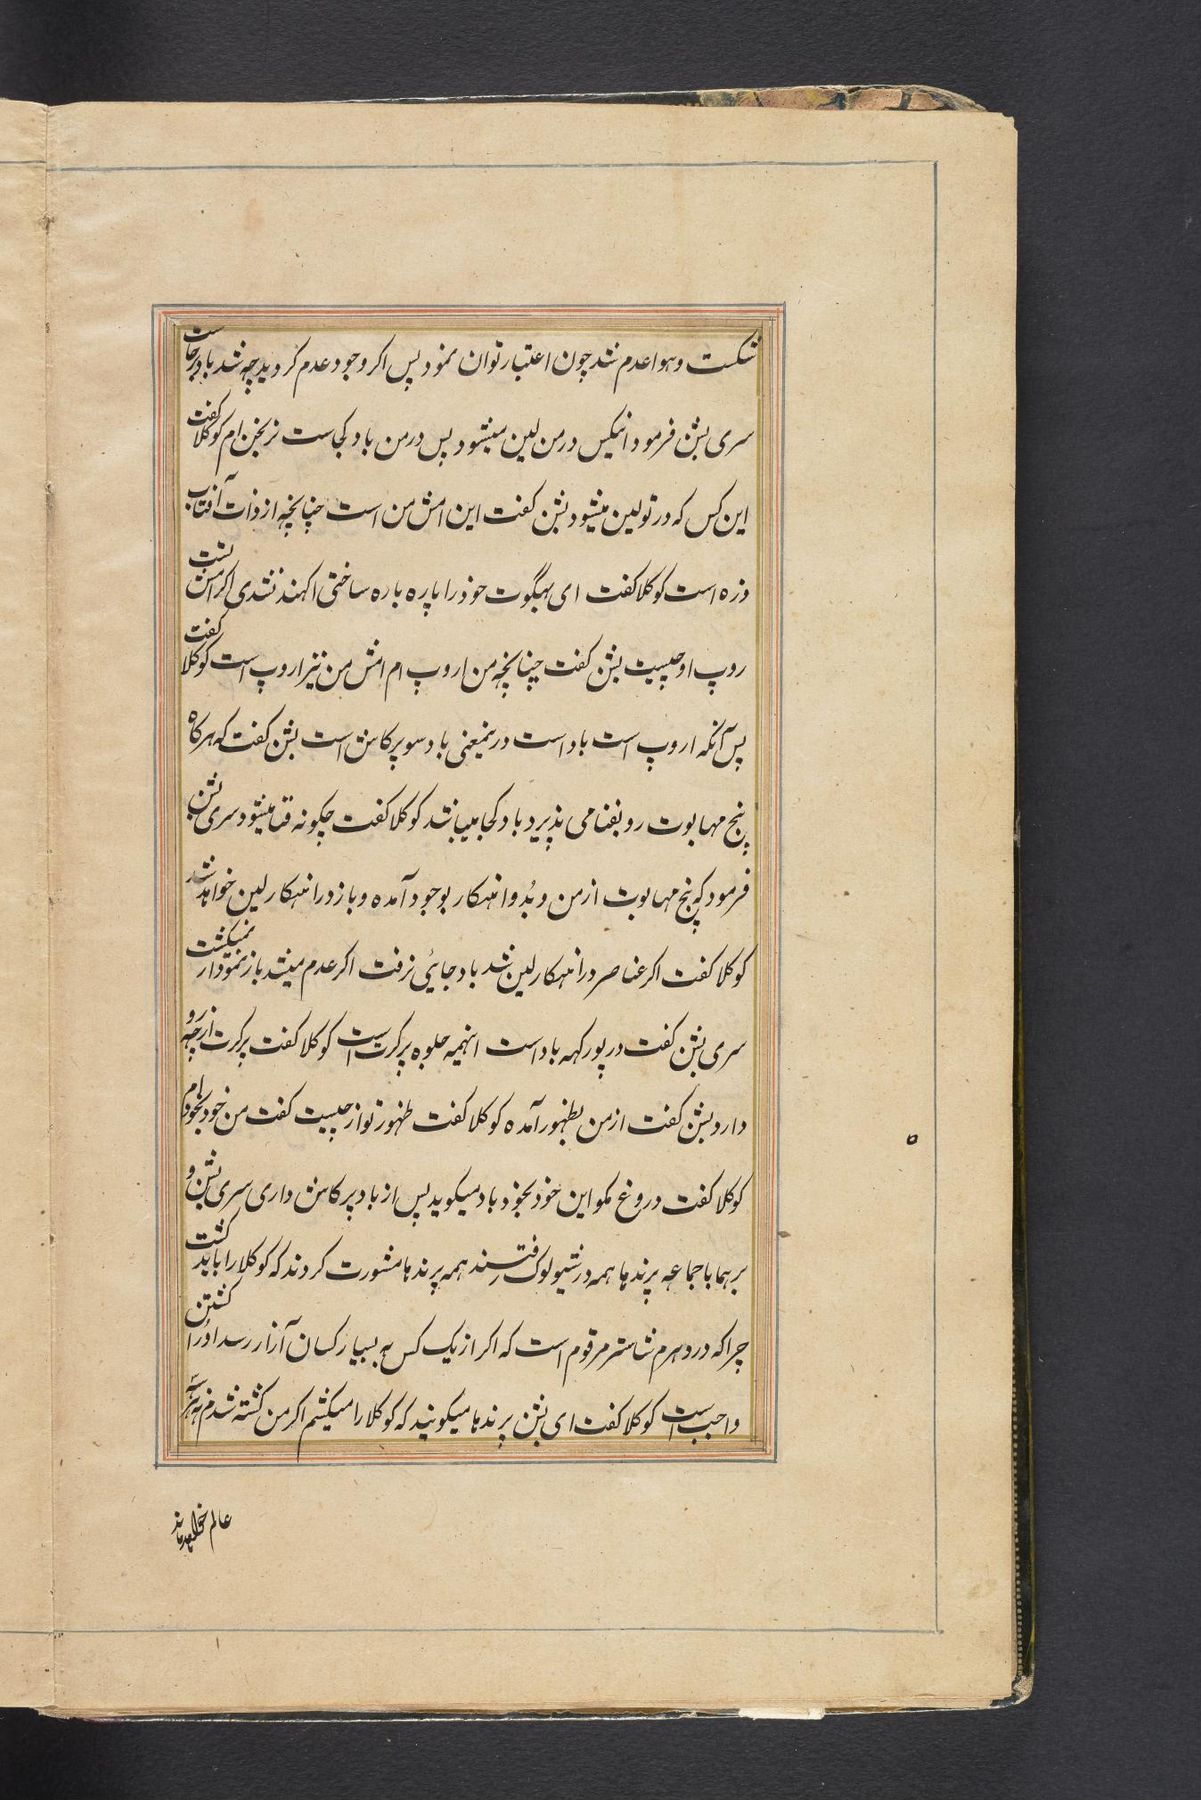 شکست و هوا عدم شد چون اعتبار توان نمود پس اکر وجود عدم کردید چه شد باد برجاست
سری بشن فرمود انیکس در من لین میشود پس در من باد کجاست نرنجن ام کوکلا کفت
این کس که در تو لین میشود بشن کفت این امش من است چنانچه از ذات آفتاب
ذره است کوکلا کفت ای بهگوت خود را پاره پاره ساختی اکهند نشدی اکر امش تست
روپ او چیست بشن کفت چنانچه من اروپ ام امش من نیز اروپ است کوکلا کفت
پس آنکه اروپ است باد است درینمعنی باد سوپرکاش است بشن کفت که هرکاه
پنج مهابوت رو بفنا می پذیرد باد کجا میباشد کوکلا کفت چکونه فنا میشود سری بشن
فرمود که پنج مهابوت از من و بُد و انهکار بوجود آمده و باز در انهکار لین خواهد شد
کوکلا کفت اکر عناصر در انهکار لین شد باد جائی نرفت اکر عدم میشد باز نمودار نمیکشت
سری بشن کفت در پورکهه باد است اینهمه جلوه پرکرت است کوکلا کفت پرکرت از چه رو
دارد بشن کفت از من بظهور آمده کوکلا کفت ظهور تو از چیست کفت من خود بخود ام
کوکلا کفت دروغ مکو این خود بخود باد میکوید پس از باد پرکاش داری سری بشن و
برهما با جماعه پرندها همه در شیولوک رفتند همه پرندها مشورت کردند که کوکلا را باید کشت
چرا که در دهرم شاستر مرقوم است که اکر از یک کس به بسیار کسان آزار رسد او را کشتن
واجب است کوکلا کفت ای بشن پرندها میکویند که کوکلا را میکشم اکر من کشته شدم
عالم